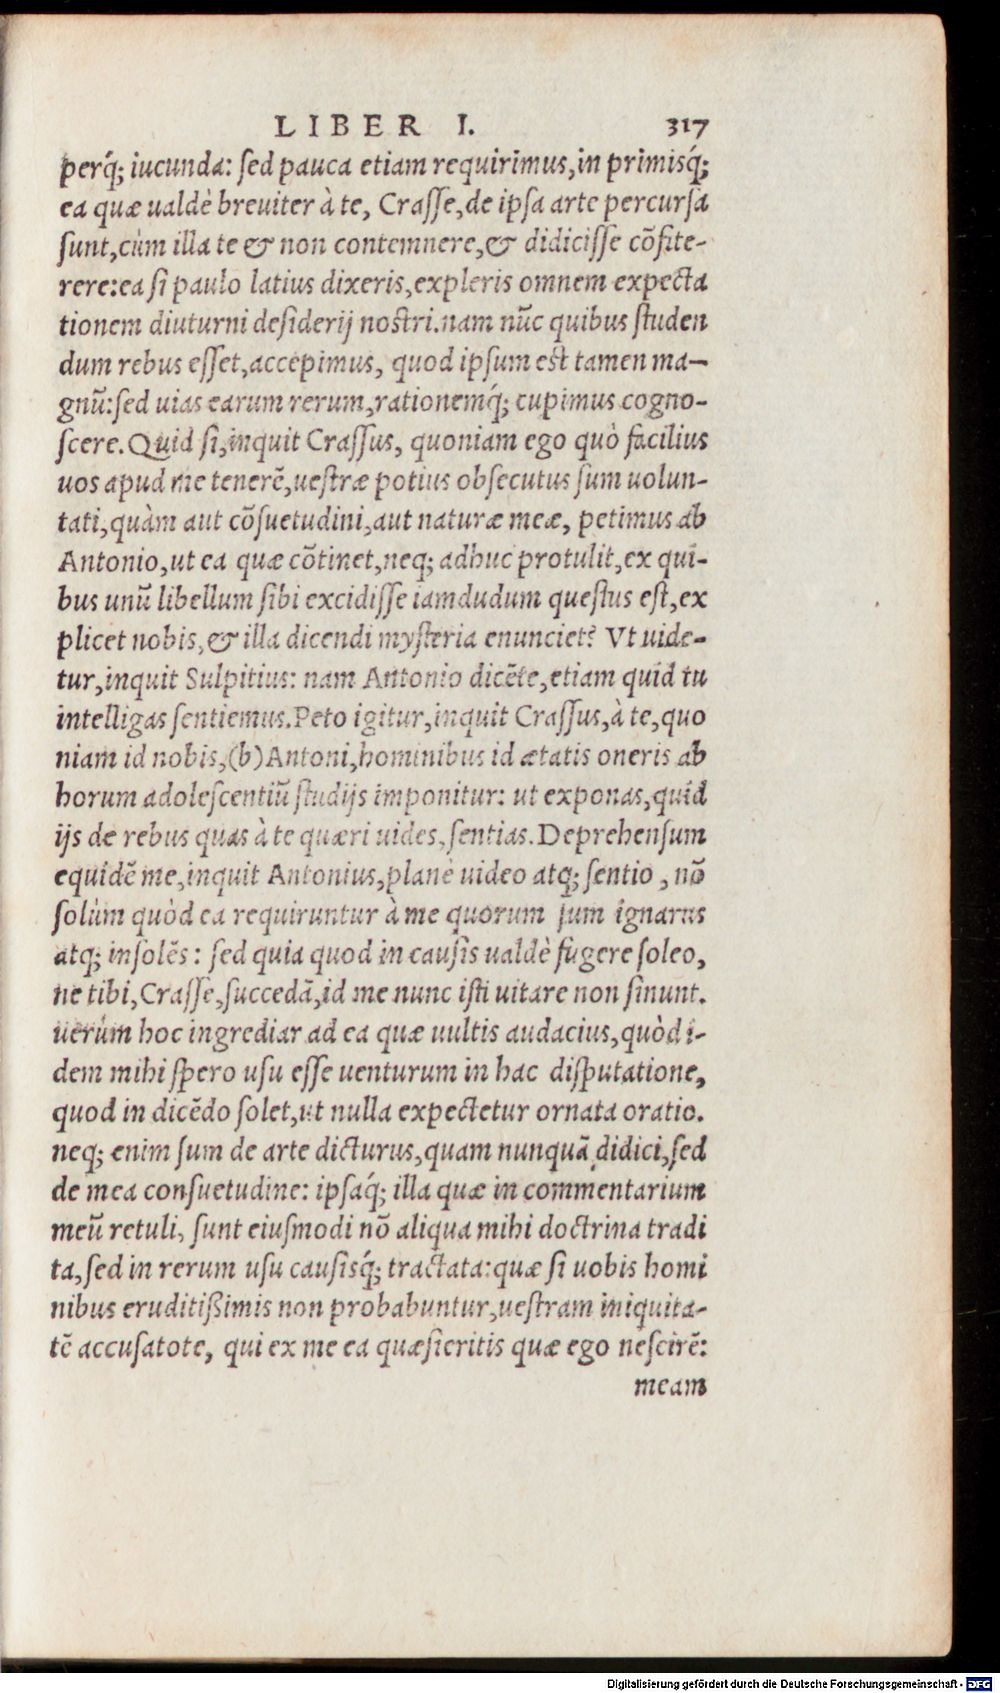 LIBER I. 317
perq́; iucunda: sed pauca etiam requirimus, in primisq́;
ea quæ ualdè breuiter à te, Crasse, de ipsa arte percursa
sunt, cùm illa te & non contemnere, & didicisse cõfite-
rere: ea si paulo latius dixeris, expleris omnem expecta
tionem diuturni desiderij nostri. nam nũc quibus studen
dum rebus esset, accepimus, quod ipsum est tamen ma-
gnũ: sed uias earum rerum, rationemq́; cupimus cogno-
scere. Quid si, inquit Crassus, quoniam ego quò facilius
uos apud me tenerẽ, uestræ potius obsecutus sum uolun-
tati, quàm aut cõsuetudini, aut naturæ meæ, petimus ab
Antonio, ut ea quæ cõtinet, neq; adhuc protulit, ex qui-
bus unũ libellum sibi excidisse iamdudum questus est, ex
plicet nobis, & illa dicendi mysteria enunciet? Vt uide-
tur, inquit Sulpitius: nam Antonio dicẽte, etiam quid tu
intelligas sentiemus. Peto igitur, inquit Crassus, à te, quo
niam id nobis, (b) Antoni, hominibus id ætatis oneris ab
horum adolescentiũ studijs imponitur: ut exponas, quid
ijs de rebus quas à te quæri uides, sentias. Deprehensum
equidẽ me, inquit Antonius, planè uideo atq; sentio, nõ
solùm quòd ea requiruntur à me quorum sum ignarus
atq; insolẽs: sed quia quod in causis ualdè fugere soleo,
ne tibi, Crasse, succedã, id me nunc isti uitare non sinunt.
uerùm hoc ingrediar ad ea quæ uultis audacius, quòd i-
dem mihi spero usu esse uenturum in hac disputatione,
quod in dicẽdo solet, ut nulla expectetur ornata oratio.
neq; enim sum de arte dicturus, quam nunquã didici, sed
de mea consuetudine: ipsaq́; illa quæ in commentarium
meũ retuli, sunt eiusmodi nõ aliqua mihi doctrina tradi
ta, sed in rerum usu causisq́; tractata: quæ si uobis homi
nibus eruditißimis non probabuntur, uestram iniquita-
tẽ accusatote, qui ex me ea quæsieritis quæ ego nescirẽ:
meam
Digitalisierung gefördert durch die Deutsche Forschungsgemeinschaft - DFG